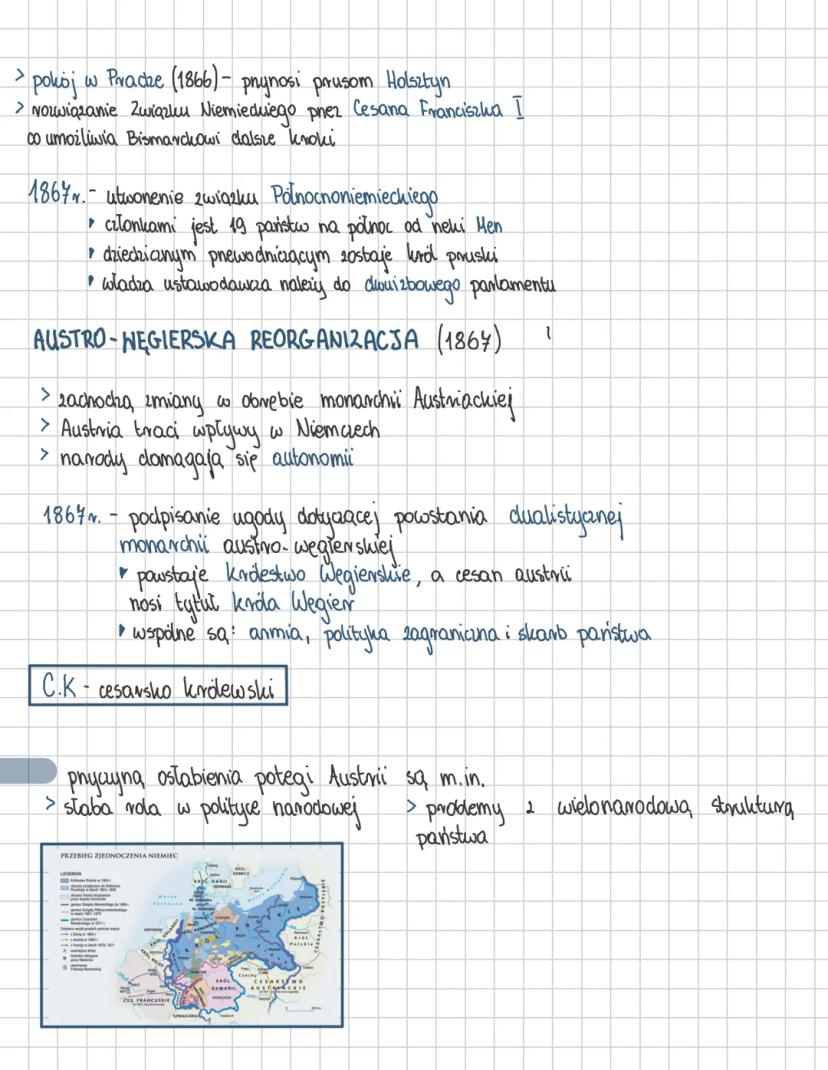 > pokój w Pradze (1866) - przynosi prusom Holsztyn
> rozwiązanie Związku Niemieckiego przez Cesarza Franciszka I
co umożliwia Bismarckowi dalsze kroki
1867r. - utworzenie związku Północnoniemieckiego
członkami jest 19 państw na północ od rzeki Men
dziedzicznym przewodniczącym zostaje król pruski
władza ustawodawcza należy do dwuizbowego parlamentu
AUSTRO-WĘGIERSKA REORGANIZACJA (1867)
> zachodzą zmiany w obrębie monarchii Austriackiej
> Austria traci wpływy w Niemczech
> narody domagają się autonomii
1867r. - podpisanie ugody dotyczącej powstania dualistycznej
monarchii austro-węgierskiej
powstaje Królestwo Węgierskie, a cesarz austrii
nosi tytuł króla Węgier
wspólne są: armia, polityka zagraniczna i skarb państwa
C.K - cesarsko królewski
przyczyną osłabienia potęgi Austrii są m.in.
> słaba rola w polityce narodowej
> problemy z wielonarodową strukturą
państwa
PRZEBIEG ZJEDNOCZENIA NIEMIEC
LEGENDA
KRÓL. DANII
KRÓL. SZWECJI
Czechy
CESARSTWO
AUSTRIACKIE
KRÓL.
BAWARII
CES. FRANCUSKIE
SZWAJCARIA